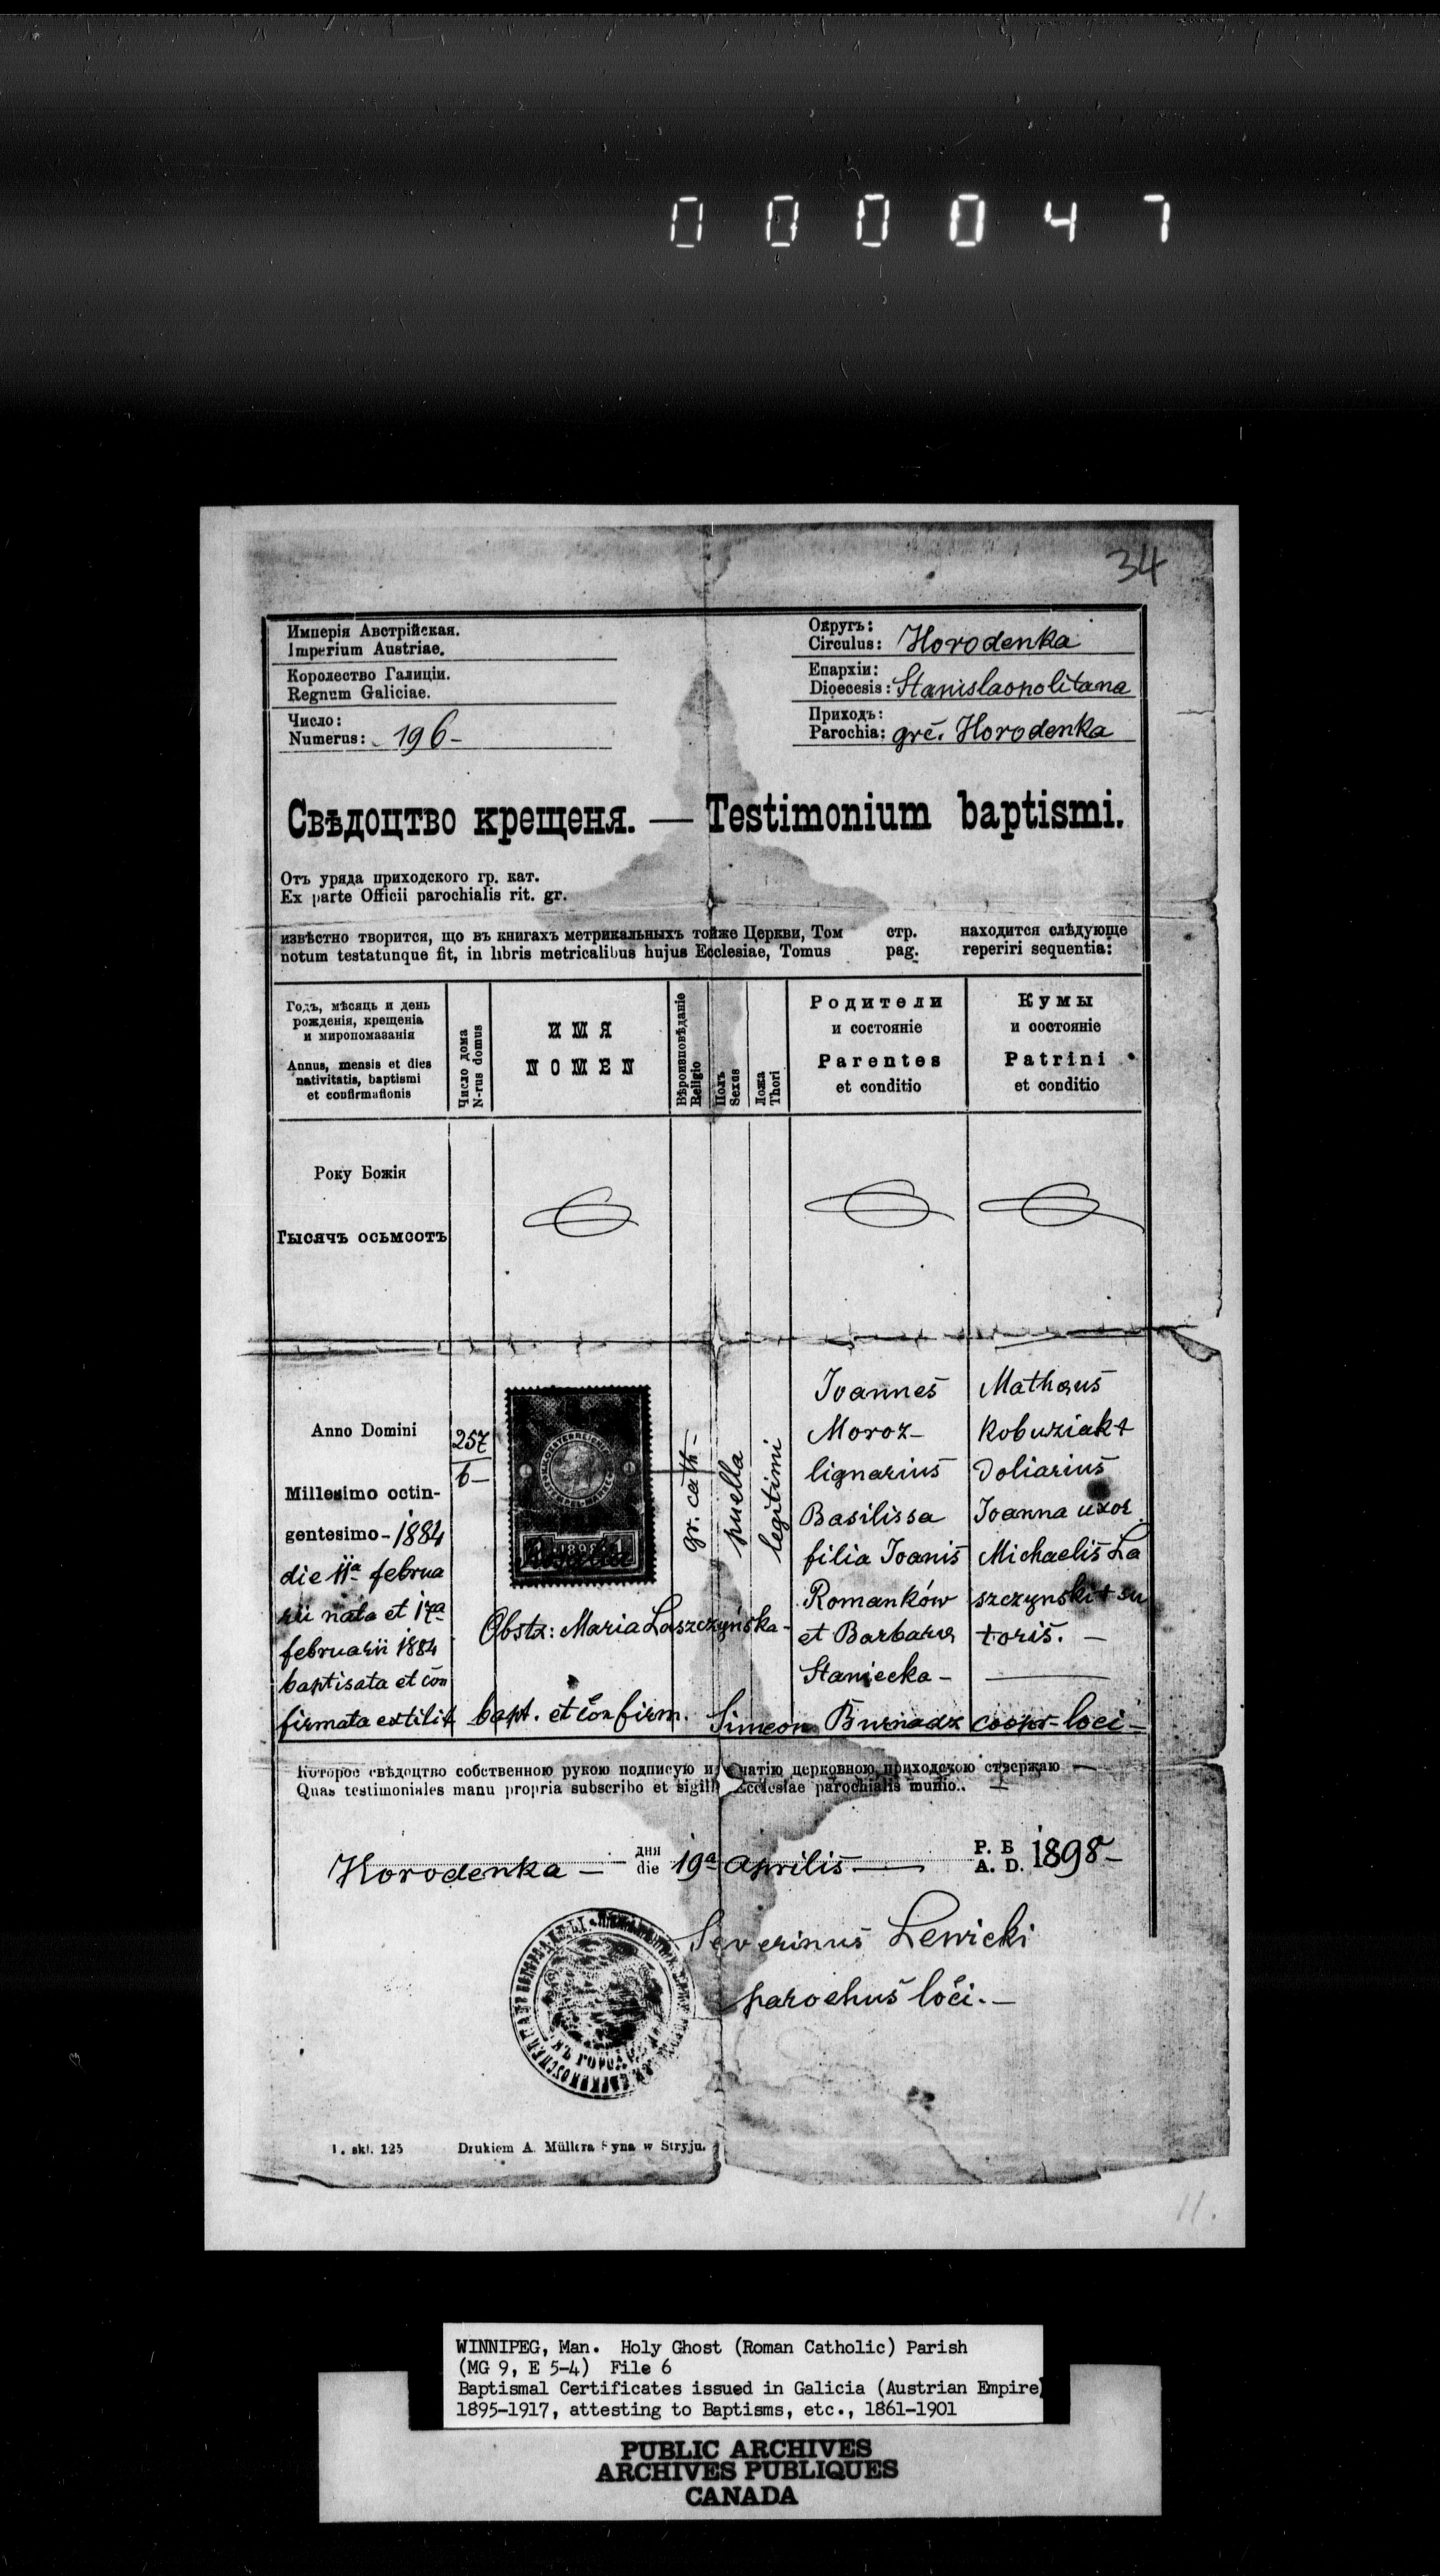 000047
34
Имперія Австрійская.
Imperium Austriae.
Королество Галиціи.
Regnum Galiciae.
Число:
Numerus: 196-
Округъ:
Circulus: Horodenka
Епархіи:
Dioecesis: Stanislaopolitana
Приходъ:
Parochia: grć. Horodenka
Свѣдоцтво крещеня. — Testimonium baptismi.
Отъ уряда приходского гр. кат.
Ex parte Officii parochialis rit. gr.
извѣстно творится, що въ книгахъ метрикальныхъ тойже Церкви, Том стр. находится слѣдующе
notum testatunque fit, in libris metricalibus hujus Ecclesiae, Tomus pag. reperiri sequentia:
Годъ, мѣсяць и день
рожденія, крещенія
и миропомазанія
Annus, mensis et dies
nativitatis, baptismi
et confirmationis
Число дома
N-rus domus
ИМЯ
NOMEN
Вѣроисповѣданіе
Religio
Полъ
Sexus
Ложа
Thori
Родители
и состояніе
Parentes
et conditio
Кумы
и состояніе
Patrini
et conditio
Року Божія
Тысячъ осьмсотъ
Anno Domini
Millesimo octin-
gentesimo - 1884
die 11a februa
rii nata et 17a
februarii 1884
baptisata et con
firmata extitit
257
6-
1898
Obstx: Maria Laszczyńska-
bapt. et confirm. Simeon Burnadz coopr-loci-
gr. cath-
puella
legitimi
Ioannes
Moroz-
lignarius
Basilissa
filia Joanis
Romanków
et Barbara
Staniecka-
Matheus
Kobuziak+
Doliarius
Joanna uxor
Michaelis La
szczynski+su
toris. -
Которое свѣдоцтво собственною рукою подписую и печатію церковною приходскою ствержаю
Quas testimoniales manu propria subscribo et sigillo Ecclesiae parochialis munio..
Horodenka — дня
die 19a Aprilis — Р. Б
A. D. 1898-
Severinus Lewicki
parochus loci.-
skł. 125 Drukiem A. Müllera Syna w Stryju.
11.
WINNIPEG, Man. Holy Ghost (Roman Catholic) Parish
(MG 9, E 5-4) File 6
Baptismal Certificates issued in Galicia (Austrian Empire)
1895-1917, attesting to Baptisms, etc., 1861-1901
PUBLIC ARCHIVES
ARCHIVES PUBLIQUES
CANADA